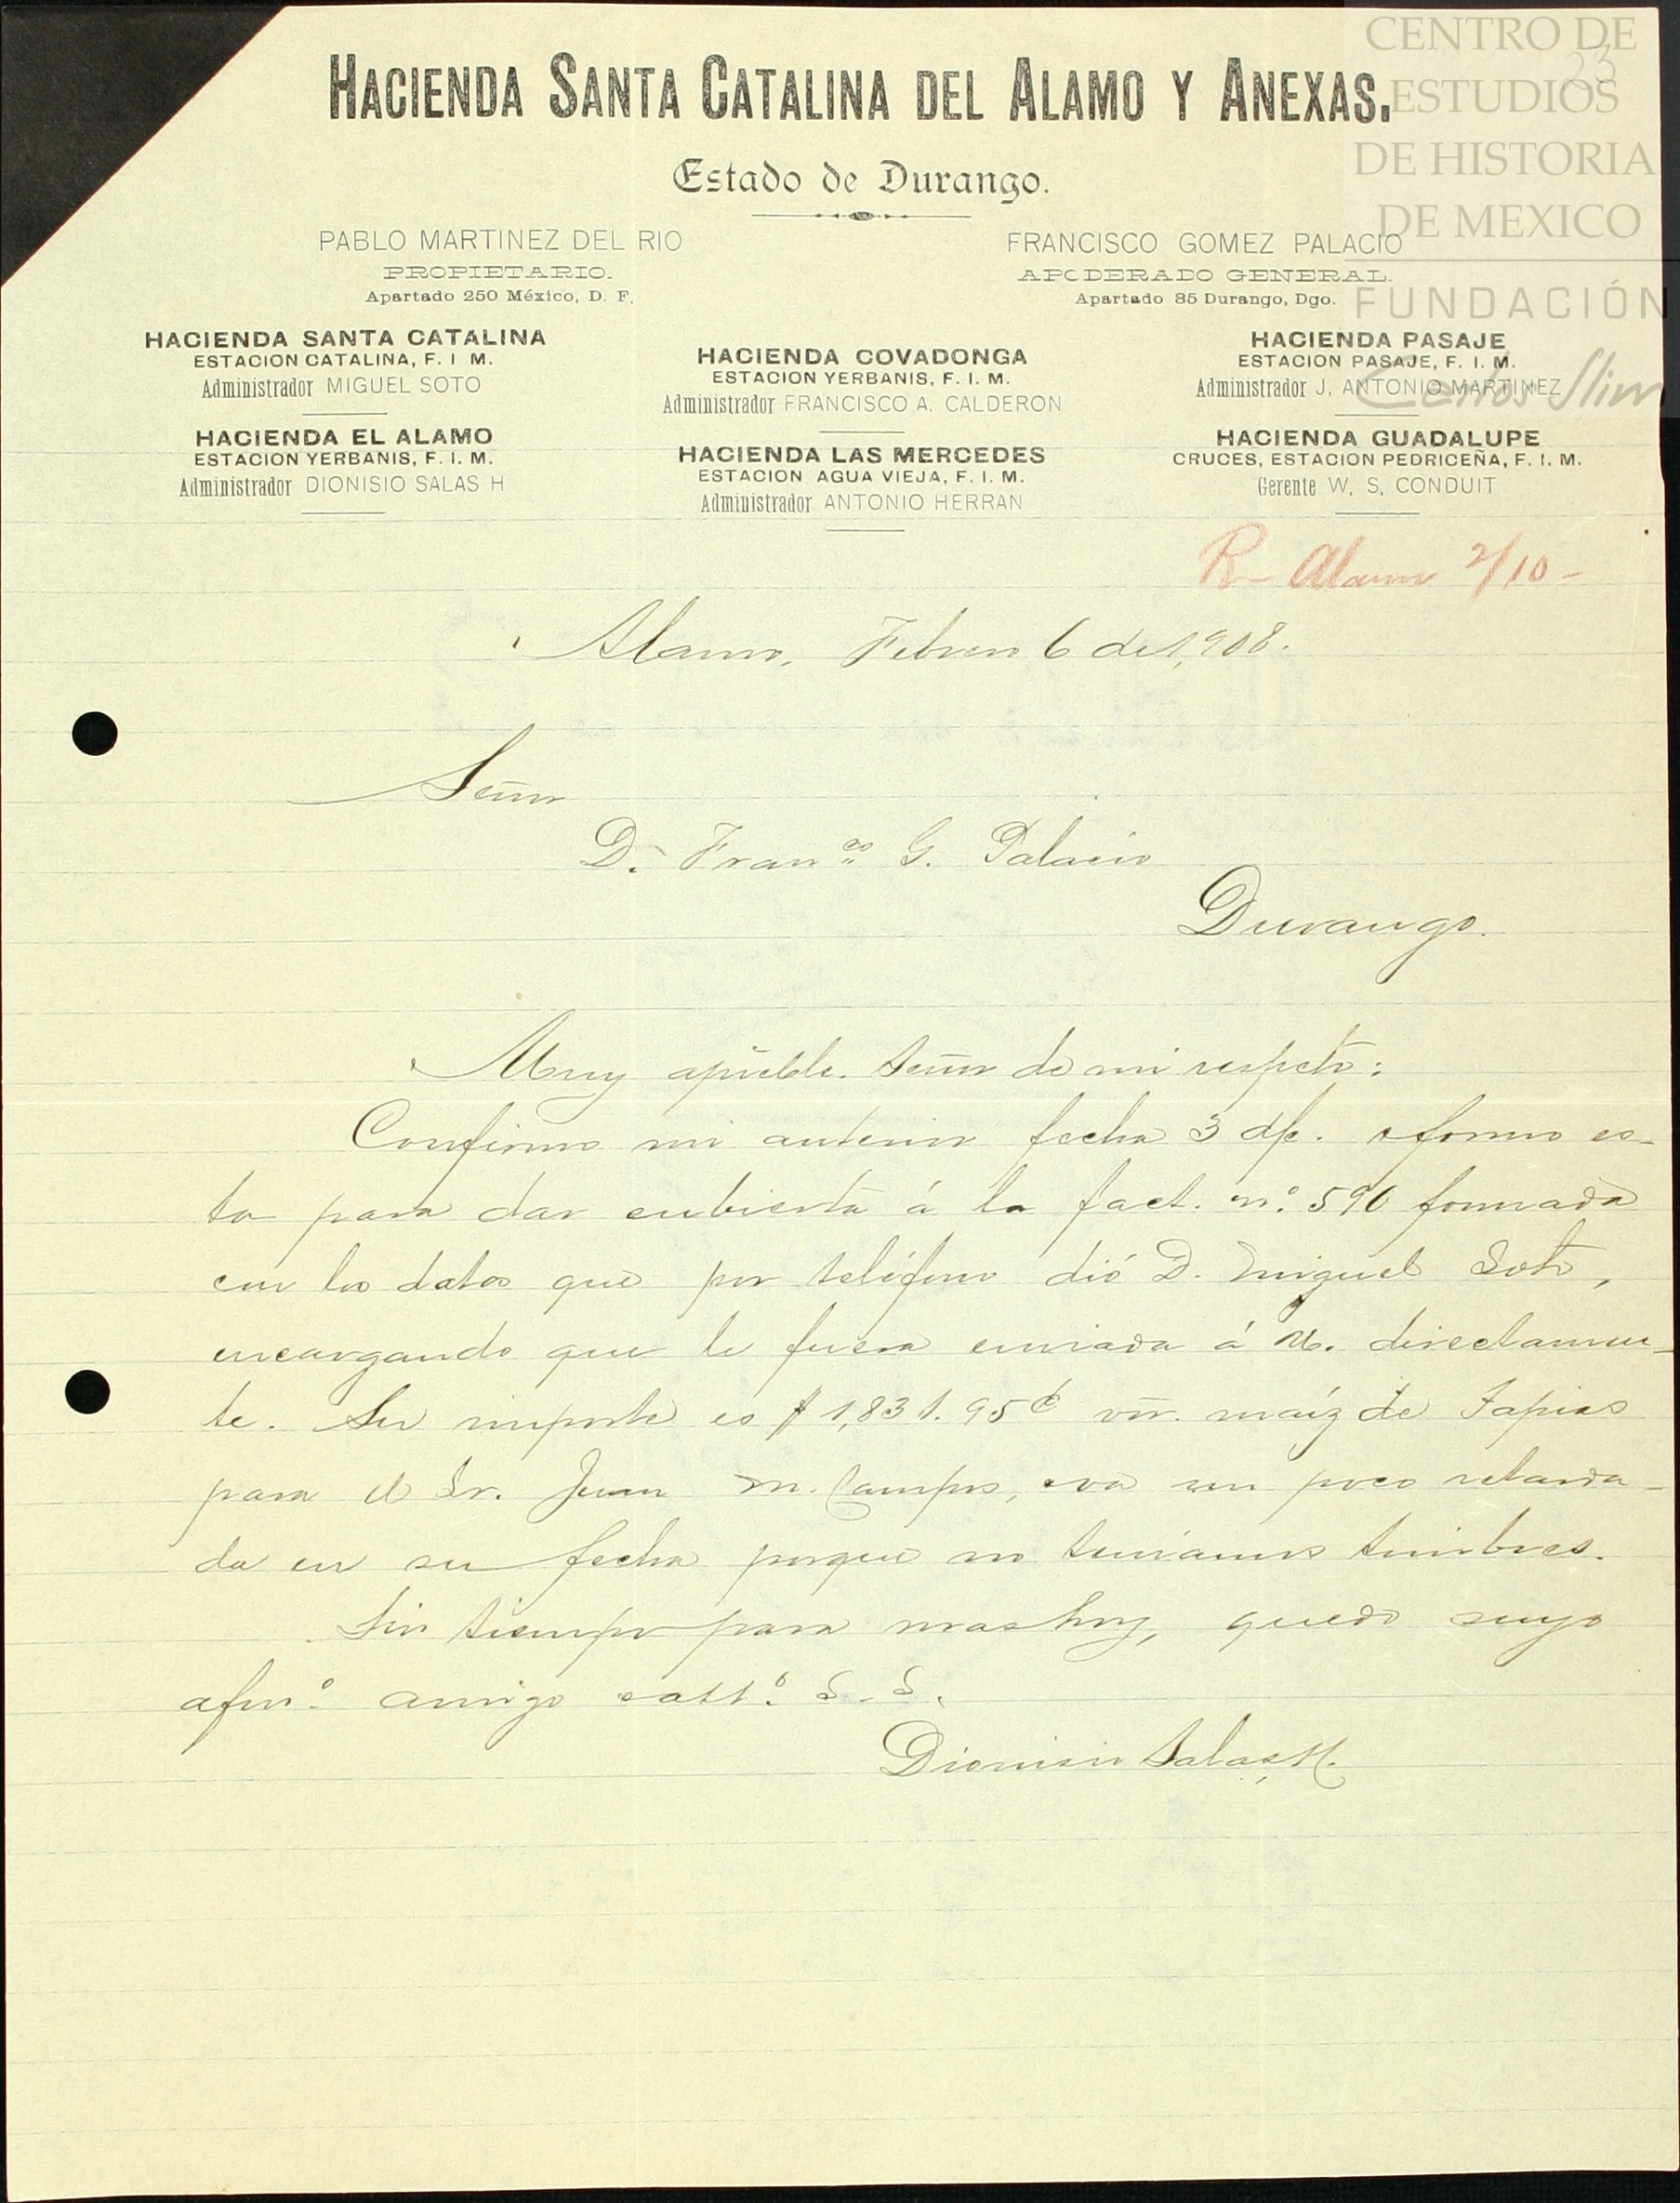 CENTRO DE
ESTUDIOS
DE HISTORIA
DE MEXICO
FUNDACIÓN
Carlos Slim
23
HACIENDA SANTA CATALINA DEL ALAMO Y ANEXAS.
Estado de Durango.
PABLO MARTINEZ DEL RIO
PROPIETARIO.
Apartado 250 México, D. F.
FRANCISCO GOMEZ PALACIO
APODERADO GENERAL.
Apartado 85 Durango, Dgo.
HACIENDA SANTA CATALINA
ESTACION CATALINA, F. I M.
Administrador MIGUEL SOTO
HACIENDA EL ALAMO
ESTACION YERBANIS, F. I. M.
Administrador DIONISIO SALAS H
HACIENDA COVADONGA
ESTACION YERBANIS, F. I. M.
Administrador FRANCISCO A. CALDERON
HACIENDA LAS MERCEDES
ESTACION AGUA VIEJA, F. I. M.
Administrador ANTONIO HERRAN
HACIENDA PASAJE
ESTACION PASAJE, F. I. M.
Administrador J. ANTONIO MARTINEZ
HACIENDA GUADALUPE
CRUCES, ESTACION PEDRICEÑA, F. I. M.
Gerente W. S. CONDUIT
R- Alamo 2/10-
Alamo, Febrero 6 de 1,908.
Señor
D. Franco G. Palacio
Durango.
Muy apreble. Señor de mi respeto:
Confirmo mi anterior fecha 3 d/c. formo es-
ta para dar cubierta á la fact. no. 590 formada
con los datos que por teléfono dió D. Miguel Soto,
encargando que le fuera enviada á U. directamen-
te. Su importe es $ 1,831.95¢ vr. maíz de Tapias
para el Sr. Juan M. Campos, va un poco retarda-
da en su fecha porque no teniamos timbres.
Sin tiempo para mas hoy, quedo suyo
afmo. amigo att°. S. S.
Dionisio Salas H.